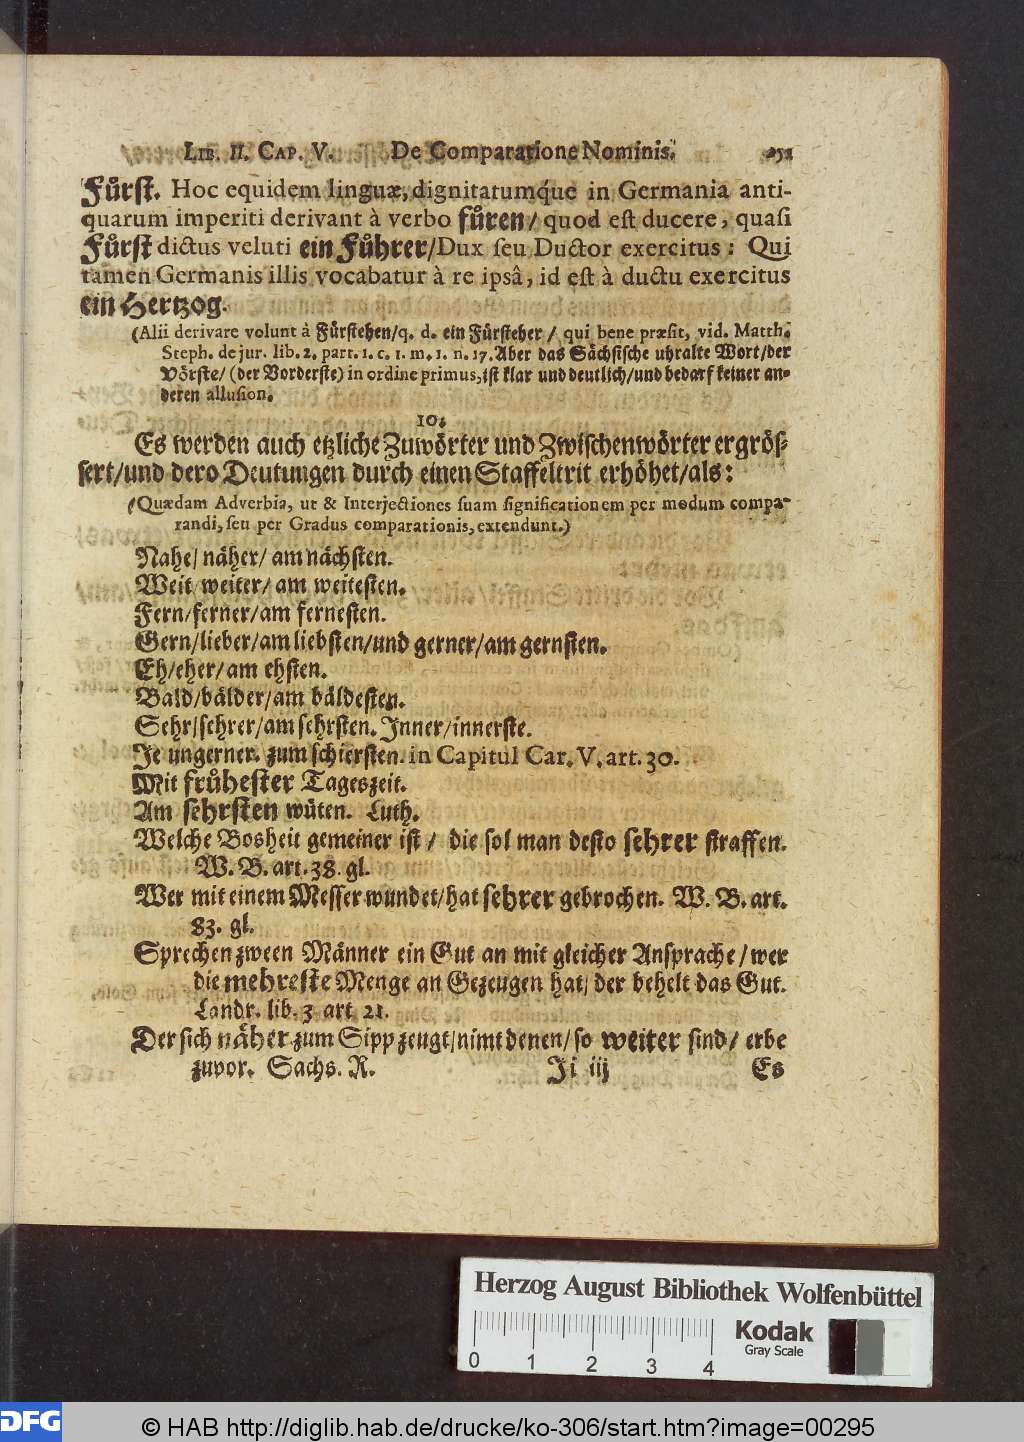 LIB. II. CAP. V. De Comparatione Nominis.
Fuͤrſt. Hoc equidem linguæ, dignitatumq́ue in Germania anti-
quarum imperiti derivant à verbo fuͤren/ quod eſt ducere, quaſi
Fuͤrſt dictus veluti ein Fuͤhrer/Dux ſeu Ductor exercitus: Qui
tamen Germanis illis vocabatur à re ipsâ, id eſt à ductu exercitus
ein Hertzog.
(Alii derivare volunt à Fuͤrſtehen/q. d. ein Fuͤrſteher/ qui bene præſit, vid. Matth.
Steph. de jur. lib. 2. part. 1. c. 1. m. 1. n. 17. Aber das Saͤchſiſche uhralte Wort/der
Voͤrſte/ (der Vorderſte) in ordine primus, iſt klar und deutlich/und bedarf keiner an-
deren alluſion.
10.
Es werden auch etzliche Zuwoͤrter und Zwiſchenwoͤrter ergroͤſ-
ſert/und dero Deutungen durch einen Staffeltrit erhoͤhet/als:
(Quædam Adverbia, ut & Interjectiones ſuam ſignificationem per modum compa-
randi, ſeu per Gradus comparationis, extendunt.)
Nahe/ naͤher/ am naͤchſten.
Weit/ weiter/ am weiteſten.
Fern/ferner/am ferneſten.
Gern/lieber/am liebſten/und gerner/am gernſten.
Eh/eher/am ehſten.
Bald/baͤlder/am baͤldeſten.
Sehr/ſehrer/am ſehrſten. Inner/innerſte.
Je ungerner. zum ſchierſten. in Capitul Car. V. art. 30.
Mit fruͤheſter Tageszeit.
Am ſehrſten wuͤten. Luth.
Welche Bosheit gemeiner iſt/ die ſol man deſto ſehrer ſtraffen.
W. B. art. 38. gl.
Wer mit einem Meſſer wundet/hat ſehrer gebrochen. W. B. art.
83. gl.
Sprechen zween Maͤnner ein Gut an mit gleicher Anſprache/wer
die mehreſte Menge an Gezeugen hat/ der behelt das Gut.
Landr. lib. 3 art. 21.
Der ſich naͤher zum Sipp zeugt/nimt denen/ſo weiter ſind/ erbe
zuvor. Sachs. R. Ii iij Es
Herzog August Bibliothek Wolfenbüttel
Kodak
Gray Scale
0 1 2 3 4
DFG © HAB http://diglib.hab.de/drucke/ko-306/start.htm?image=00295